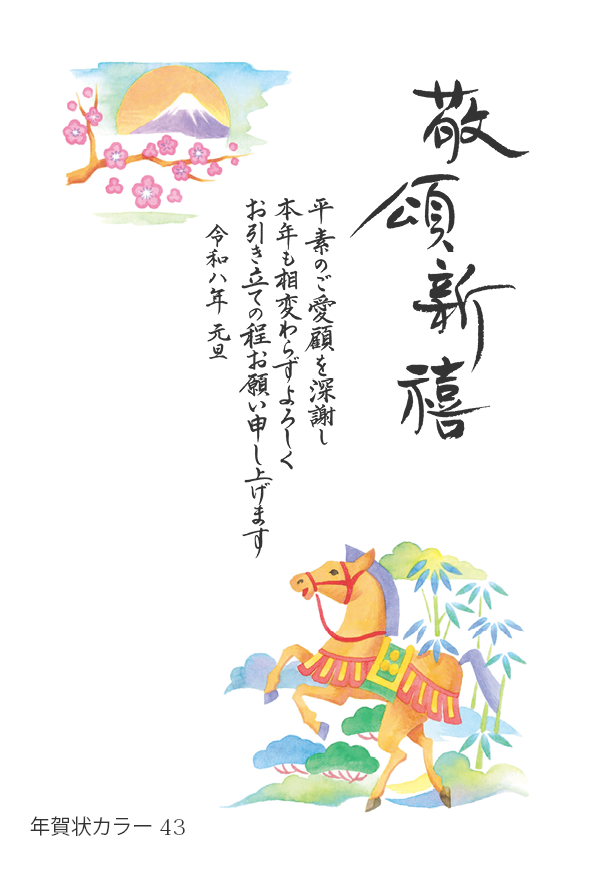 敬頌新禧
平素のご愛顧を深謝し
本年も相変わらずよろしく
お引き立ての程お願い申し上げます
令和八年 元旦
年賀状カラー 43